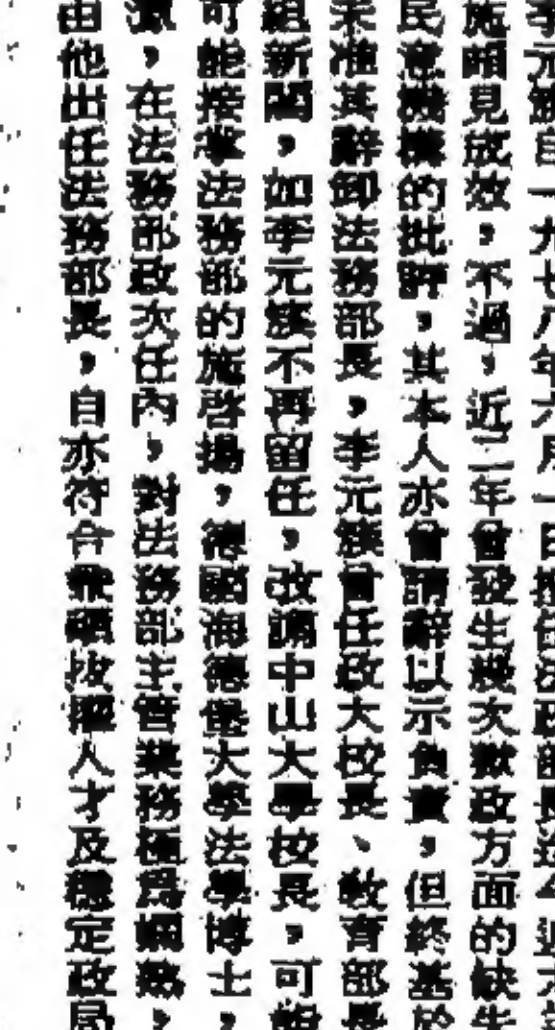 李元簇自一九七八年六月一日
施頗見成效,不過,近二年曾發生幾次獄政方面的缺失
民意機構的批評,其本人亦曾請辭以示負責,但終基於
未准其辭卸法務部長,李元簇曾任政大校長、教育部長
組新閣,如李元簇不再留任,改調中山大學校長,可能
可能接掌法務部的施啓揚,德國海德堡大學法學博士,
源,在法務部政次任內,對法務部主管業務極爲嫻熟,
由他出任法務部長,自亦符合拔擢人才及穩定政局